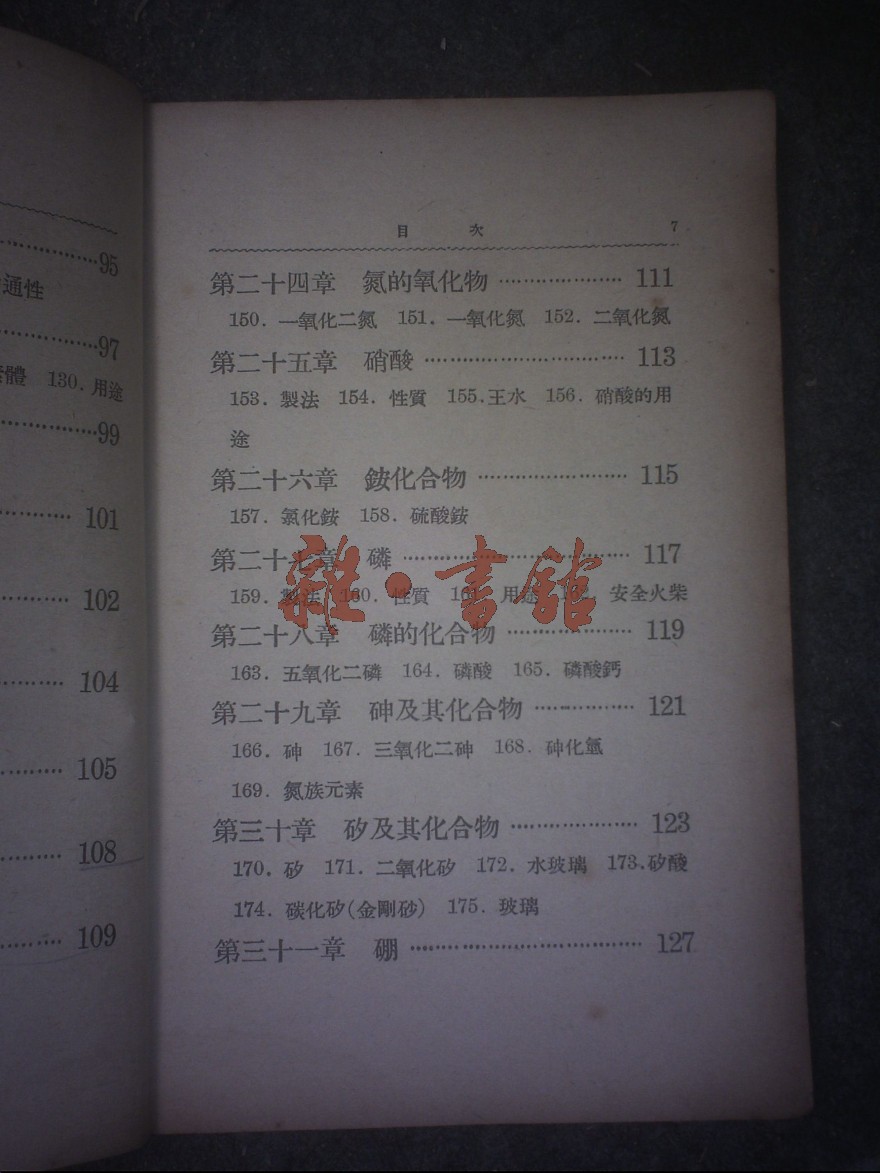 95
通性
97
體 130. 用途
99
101
102
104
105
108
109
目 次 7
第二十四章 氮的氧化物 ………………… 111
150. 一氧化二氮 151. 一氧化氮 152. 二氧化氮
第二十五章 硝酸 ………………………… 113
153. 製法 154. 性質 155. 王水 156. 硝酸的用
途
第二十六章 銨化合物 …………………… 115
157. 氯化銨 158. 硫酸銨
第二十七章 磷 …………………………… 117
159. 製法 160. 性質 161. 用途 162. 安全火柴
雜·書館
第二十八章 磷的化合物 ………………… 119
163. 五氧化二磷 164. 磷酸 165. 磷酸鈣
第二十九章 砷及其化合物 …………… 121
166. 砷 167. 三氧化二砷 168. 砷化氫
169. 氮族元素
第三十章 矽及其化合物 ……………… 123
170. 矽 171. 二氧化矽 172. 水玻璃 173. 矽酸
174. 碳化矽(金剛砂) 175. 玻璃
第三十一章 硼 …………………………… 127